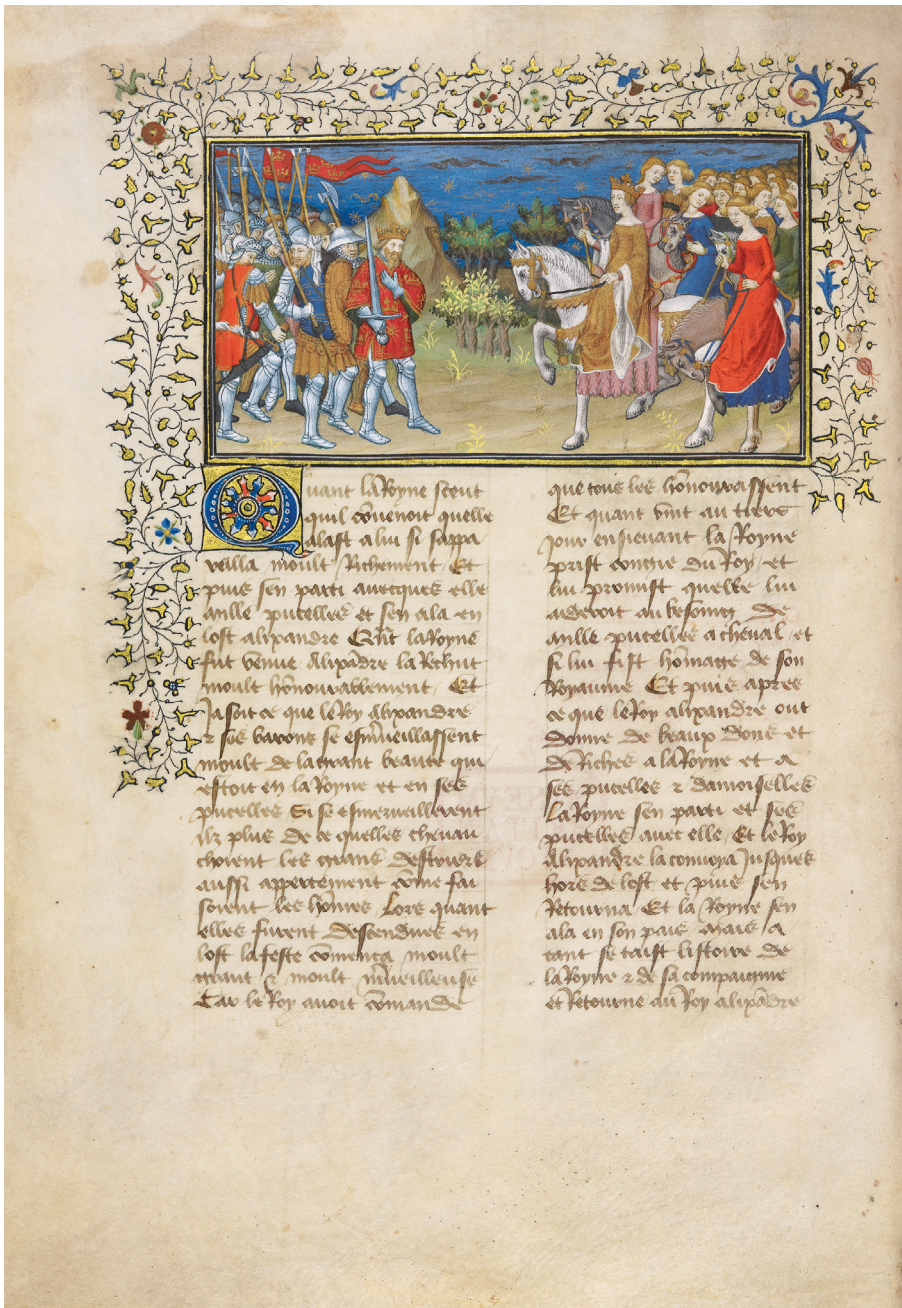 Quant la Royne sceut
quil cõuenoit quelle
alast a lui si sappa
reilla moult Richement Et
puis sen parti auecques elle
mille pucelles et sen ala en
lost alixandre Qñt la Royne
fut venue Alixãdre la Rechut
moult hõnourablement Et
Ja soit ce que le Roy Alixandre
⁊ ses barons se esm̃ueillassent
moult de la grant beaute qui
estoit en la Royne et en ses
pucelles Si se esmerueillerent
ilz plus de ce quelles cheuau
choient les grans destriers
aussi appertement cõme fai
soient les hõmes Lors quant
elles furent descendues en
lost la feste cõmenca moult
grant ⁊ moult m̃ueilleuse
Car le Roy auoit cõmande
que tous les hõnourassent
Et quant vint au tiers
Jour ensieuant la Royne
prist congie du Roy et
lui promist quelle lui
aideroit au besoing de
mille pucelles a cheual et
si lui fist hõmage de son
Royaume Et puis apres
ce que le Roy alixandre out
donne de beaux dons et
de Riches a la Royne et a
ses pucelles ⁊ damoiselles
La Royne sen parti et ses
pucelles auec elle Et le Roy
Alixandre la conuoya Jusques
hors de lost et puis sen
Retourna Et la Royne sen
ala en son pais mais a
tant se taist listoire de
la Royne ⁊ de sa compaignie
et Retourne au Roy alixãdre